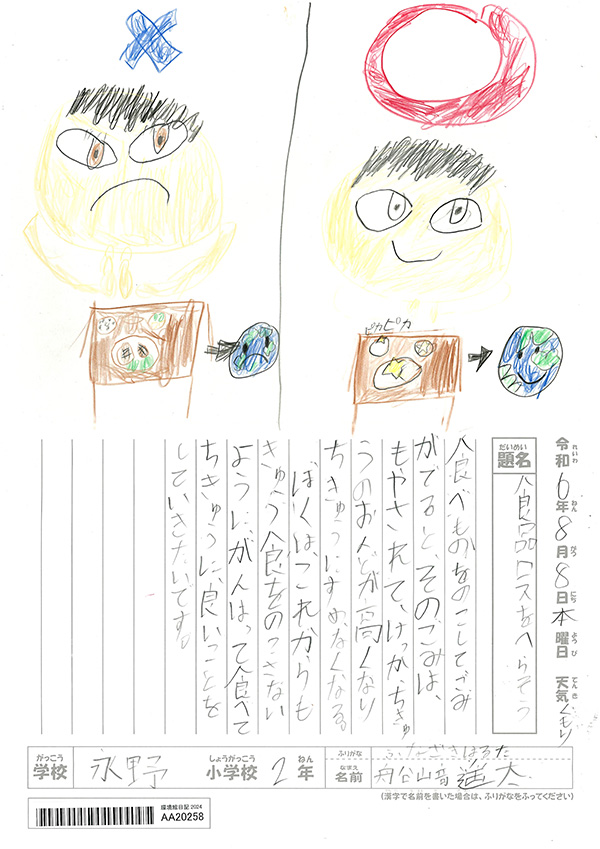 ピカピカ
令和6年8月8日木曜日 天気くもり
れいわ ねん がつ にち ようび てんき
だいめい
題名 食品ロスをへらそう
食べものをのこしてごみ
がでると、そのごみは、
もやされて、けっか、ちきゅ
うのおんどが高くなり
ちきゅうにすめなくなる。
ぼくは、これからも
きゅう食をのこさない
ように、がんばって食べて
ちきゅうに、良いことを
していきたいです。
がっこう しょうがっこう ねん ふりがな
学校 永野 小学校 2年 なまえ 名前
(漢字で名前を書いた場合は、ふりがなをふってください)
環境絵日記 2024
AA20258